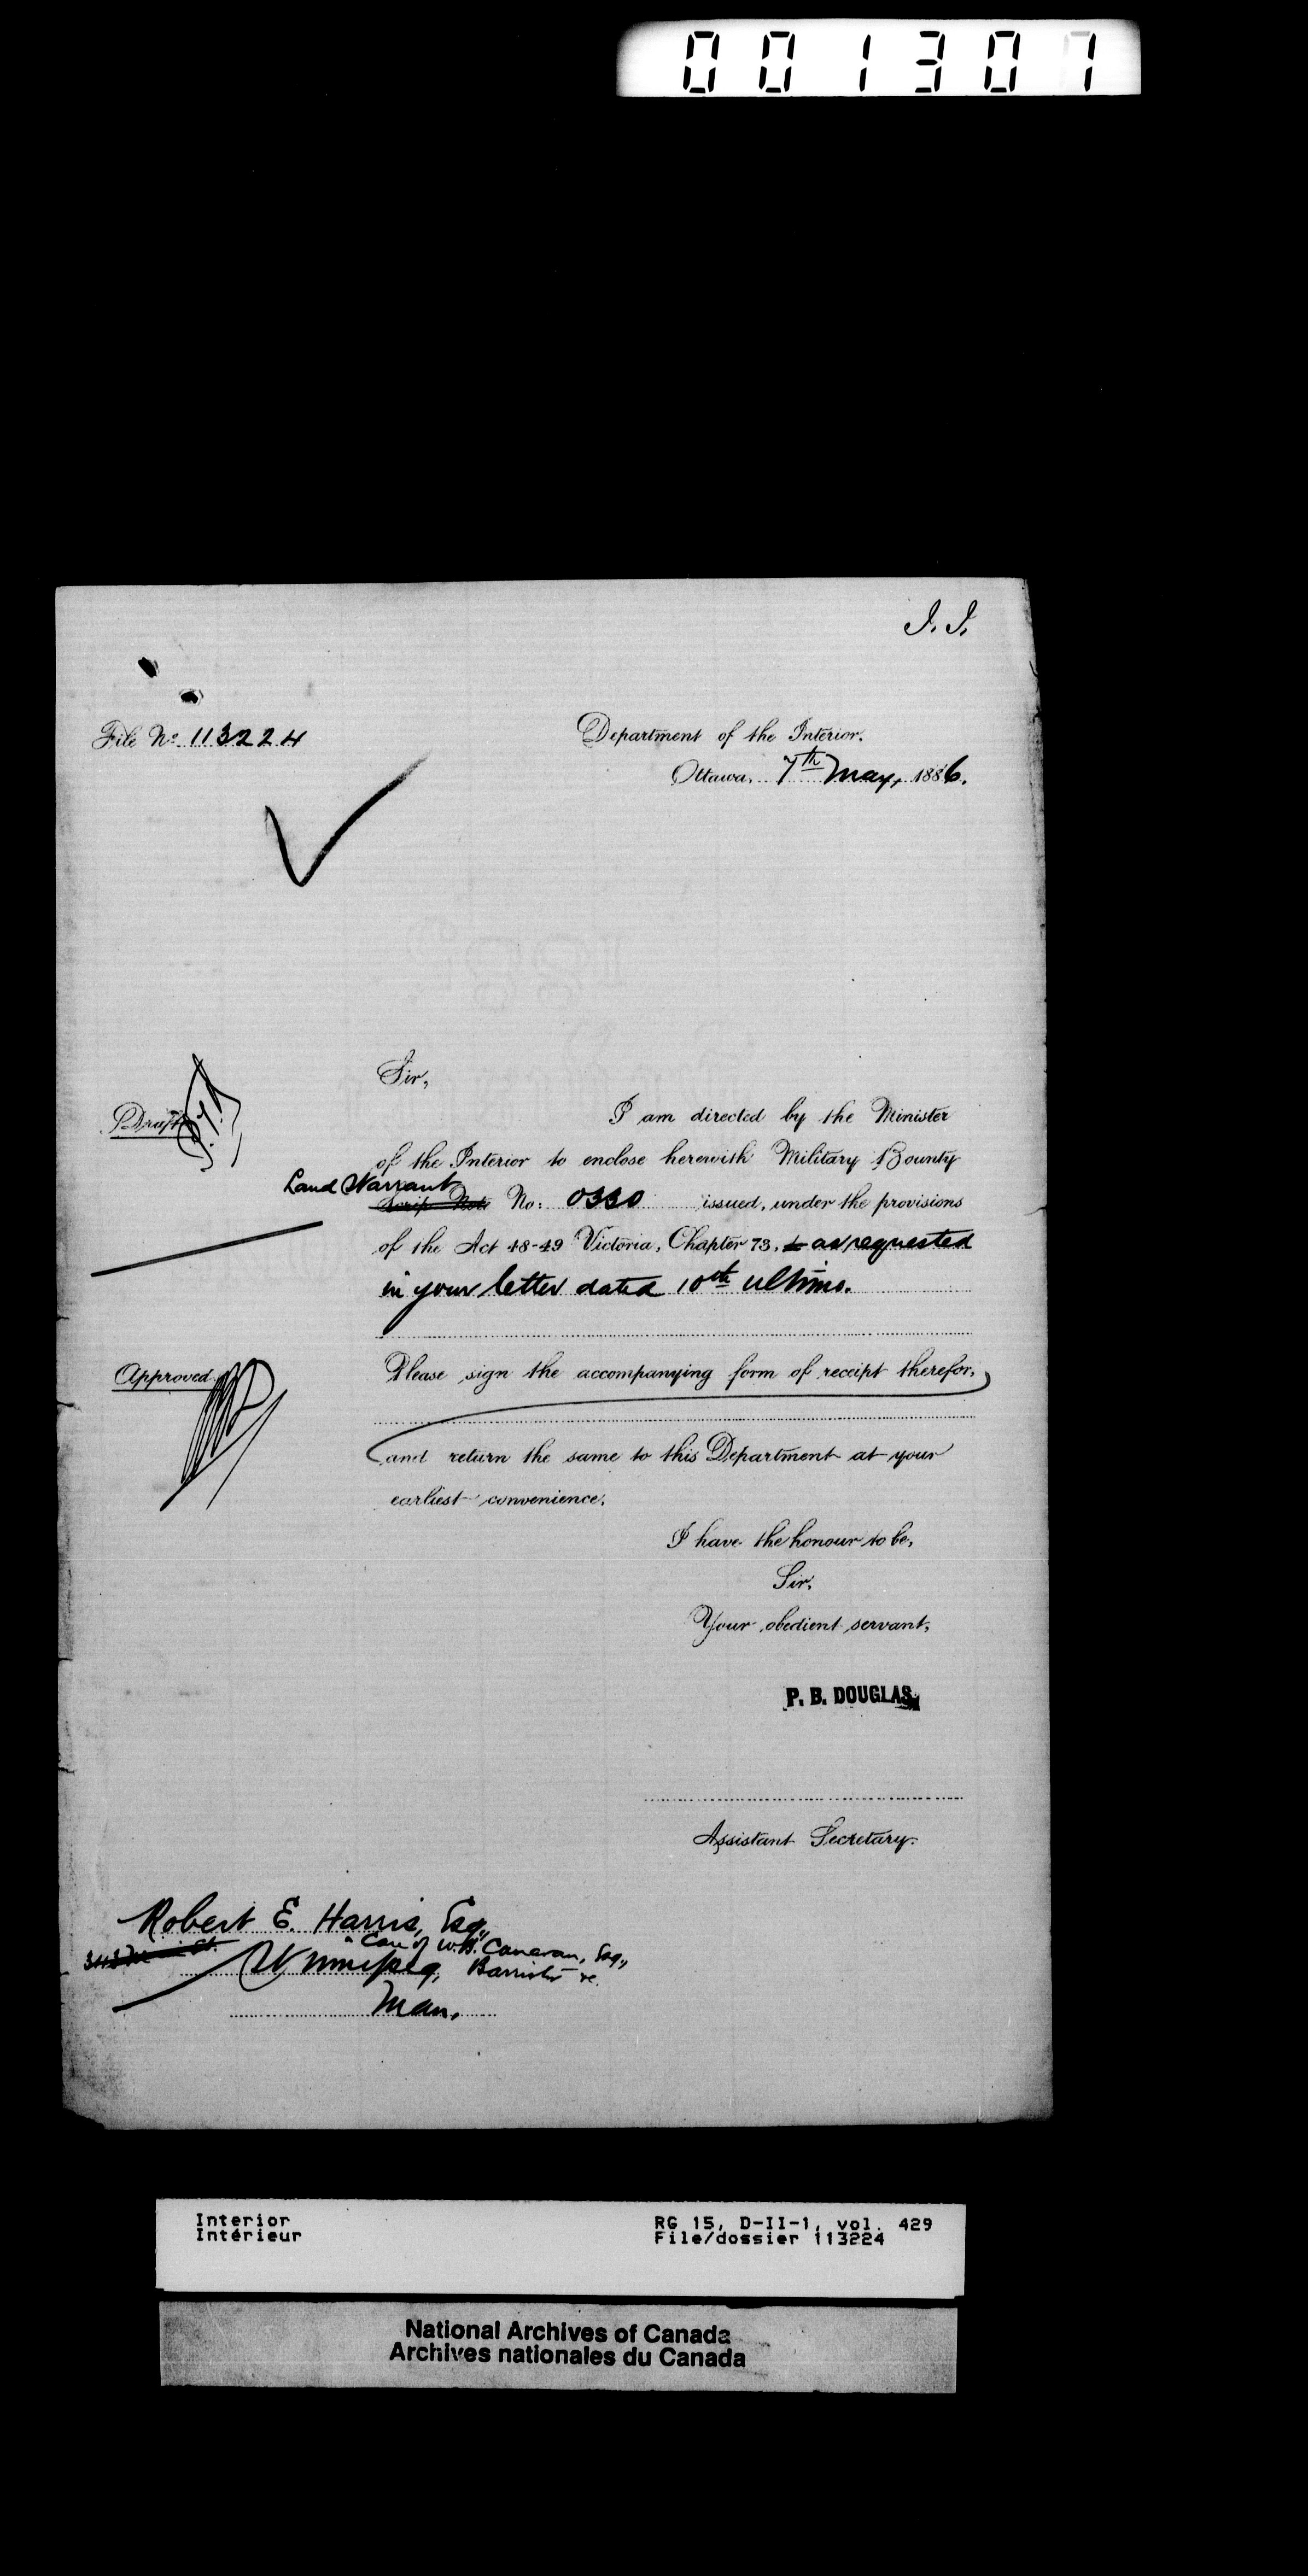 001307
J. J.
File No. 113224
Department of the Interior.
Ottawa, 7th May, 1886.
Sir,
Draft
I am directed by the Minister
of the Interior to enclose herewith Military Bounty
Land Warrant
Scrip Note No: 0330 issued, under the provisions
of the Act 48-49 Victoria, Chapter 73, as requested
in your letter dated 10th ultimo.
Approved
Please sign the accompanying form of receipt therefor,
and return the same to this Department at your
earliest convenience.
I have the honour to be,
Sir,
Your obedient servant,
P. B. DOUGLAS,
Assistant Secretary.
Robert E. Harris, Esq.,
Care of W.B. Canavan, Esq.,
Winnipeg, Barrister &c.
Man.
Interior
Intérieur
RG 15, D-II-1, vol. 429
File/dossier 113224
National Archives of Canada
Archives nationales du Canada